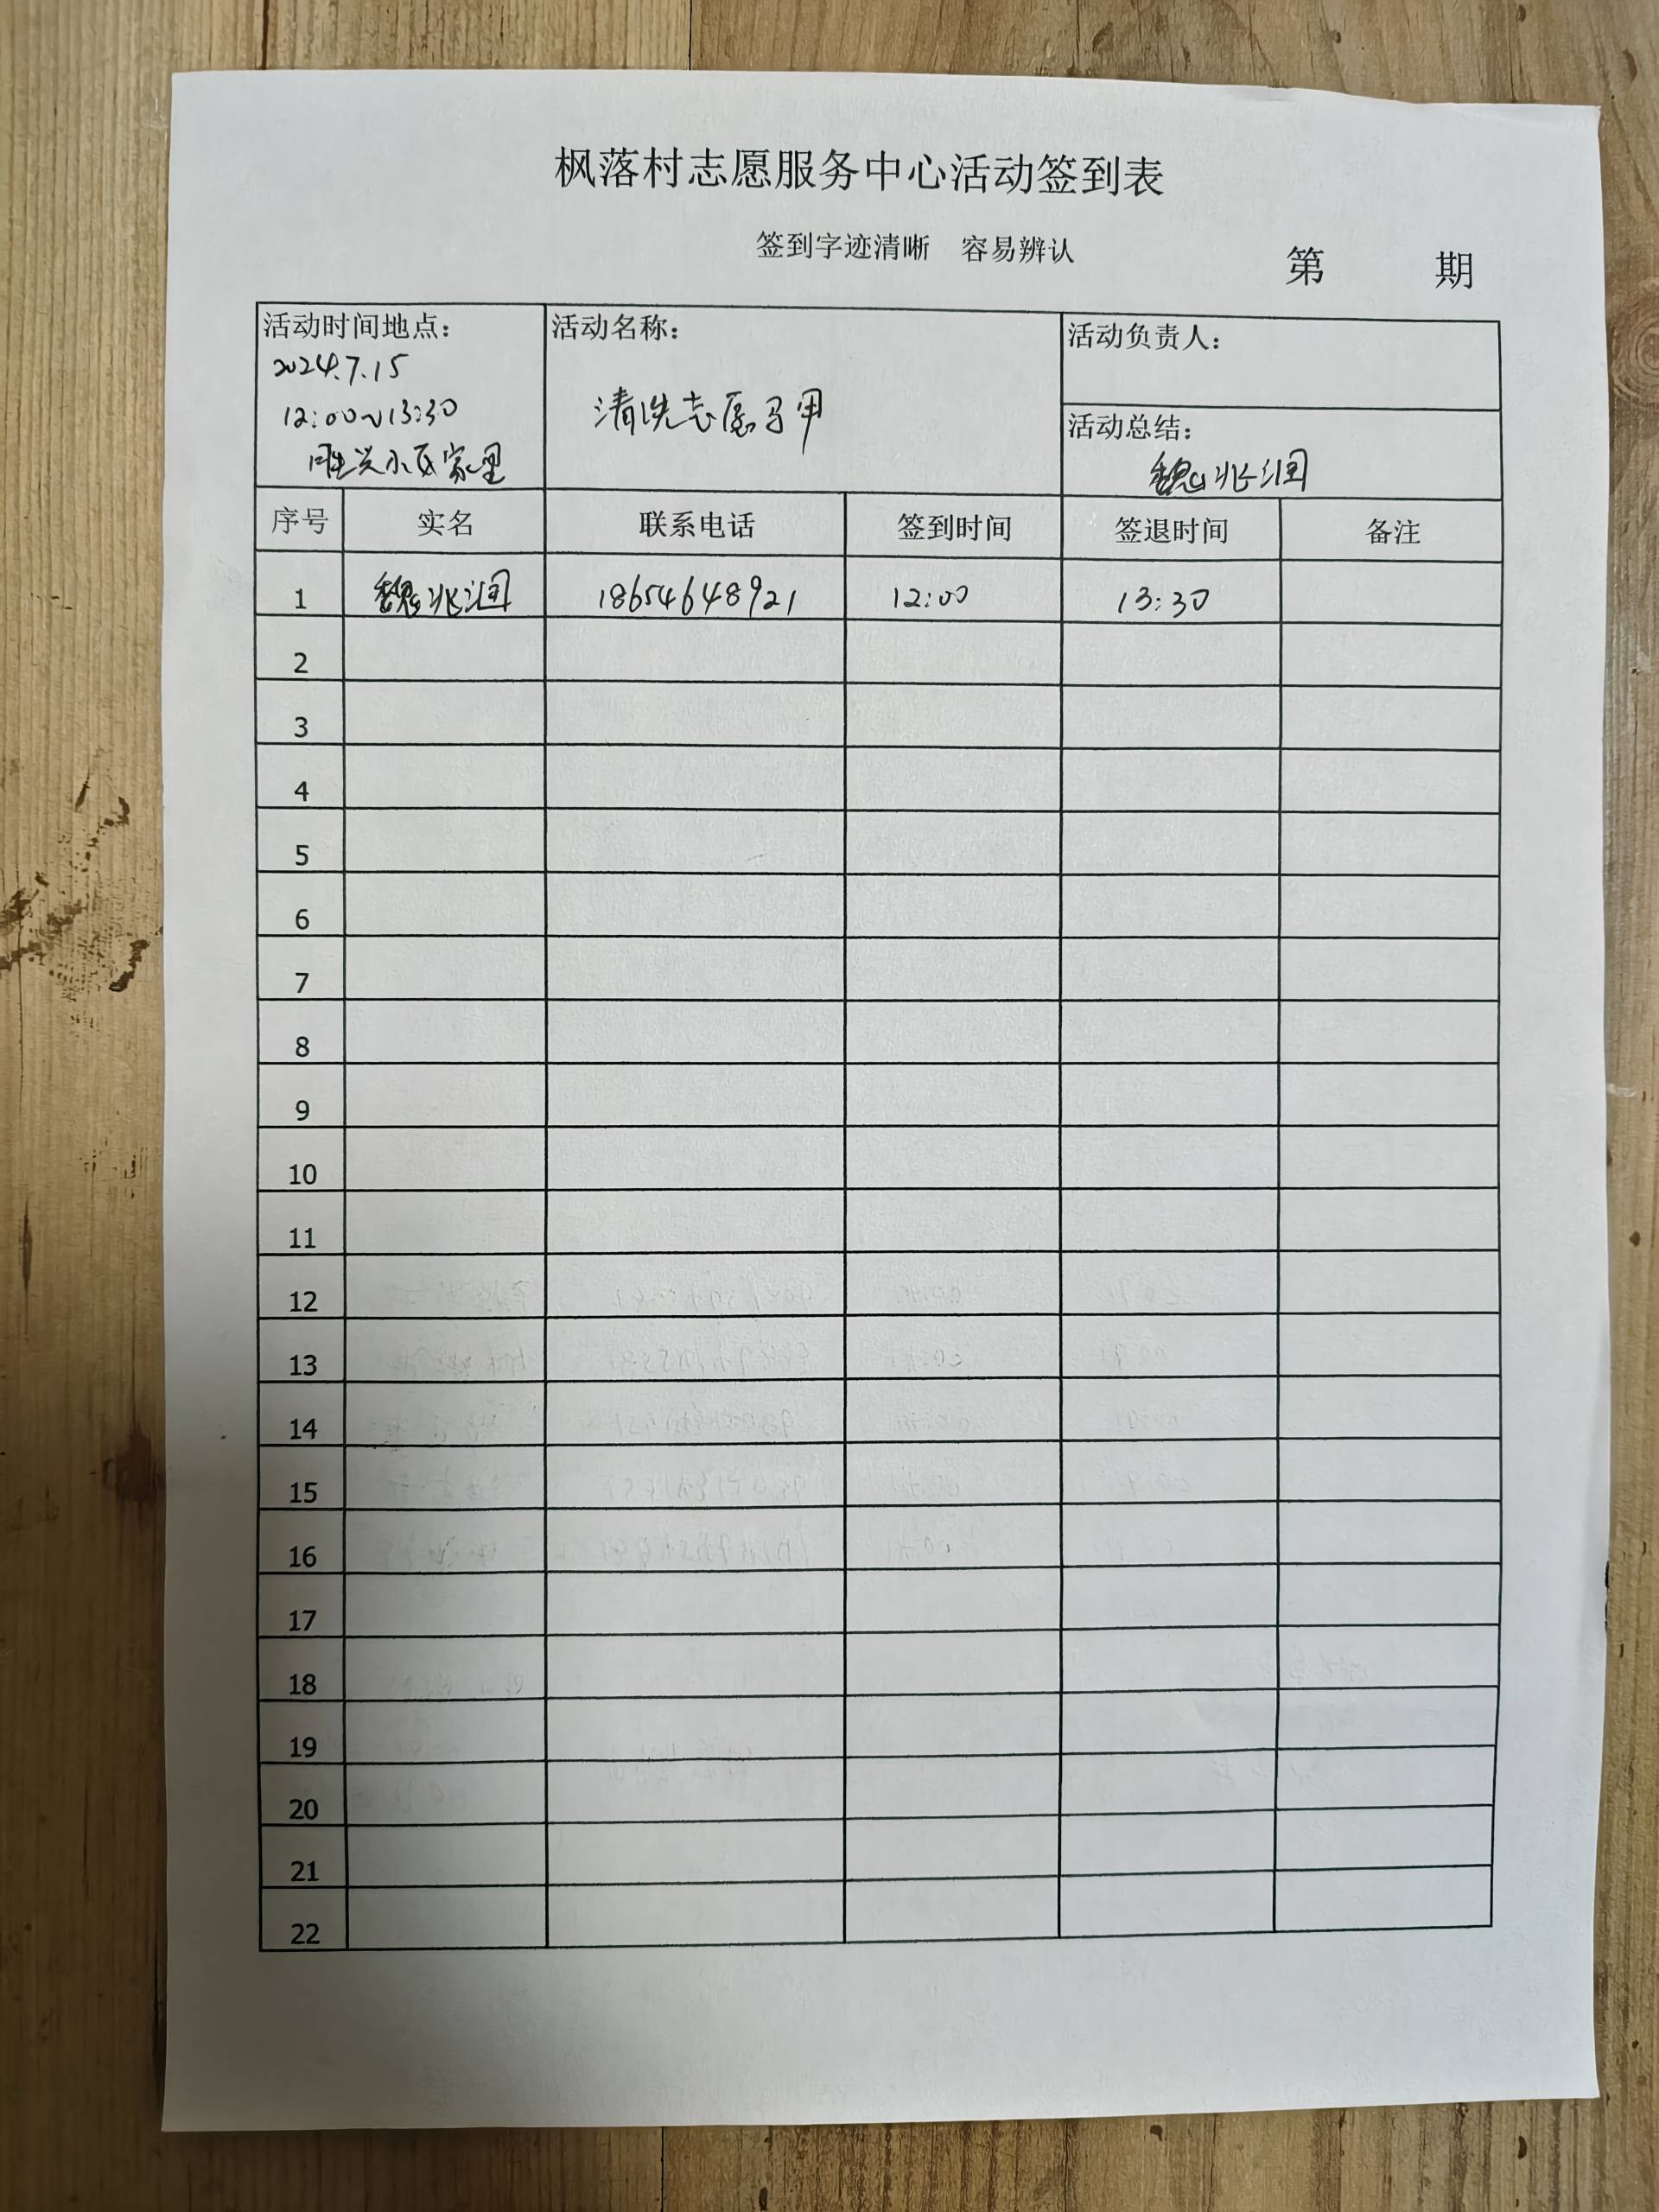 枫落村志愿服务中心活动签到表
签到字迹清晰 容易辨认
第 期
活动时间地点： 活动名称： 活动负责人：
2024.7.15
12:00~13:30
胜兴小区家里
清洗志愿马甲
活动总结：
魏兆润
序号 实名 联系电话 签到时间 签退时间 备注
1 魏兆润 18654648921 12:00 13:30
2
3
4
5
6
7
8
9
10
11
12
13
14
15
16
17
18
19
20
21
22